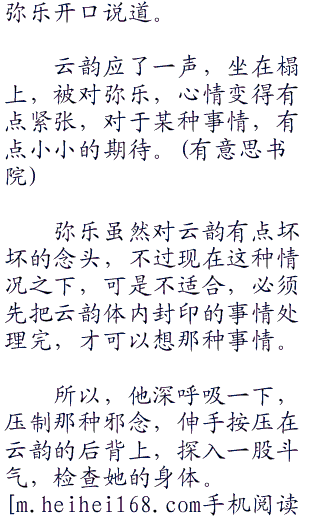 弥乐开口说道。
云韵应了一声，坐在榻
上，被对弥乐，心情变得有
点紧张，对于某种事情，有
点小小的期待。(有意思书
院)
弥乐虽然对云韵有点坏
坏的念头，不过现在这种情
况之下，可是不适合，必须
先把云韵体内封印的事情处
理完，才可以想那种事情。
所以，他深呼吸一下，
压制那种邪念，伸手按压在
云韵的后背上，探入一股斗
气，检查她的身体。
[m.heihei168.com手机阅读